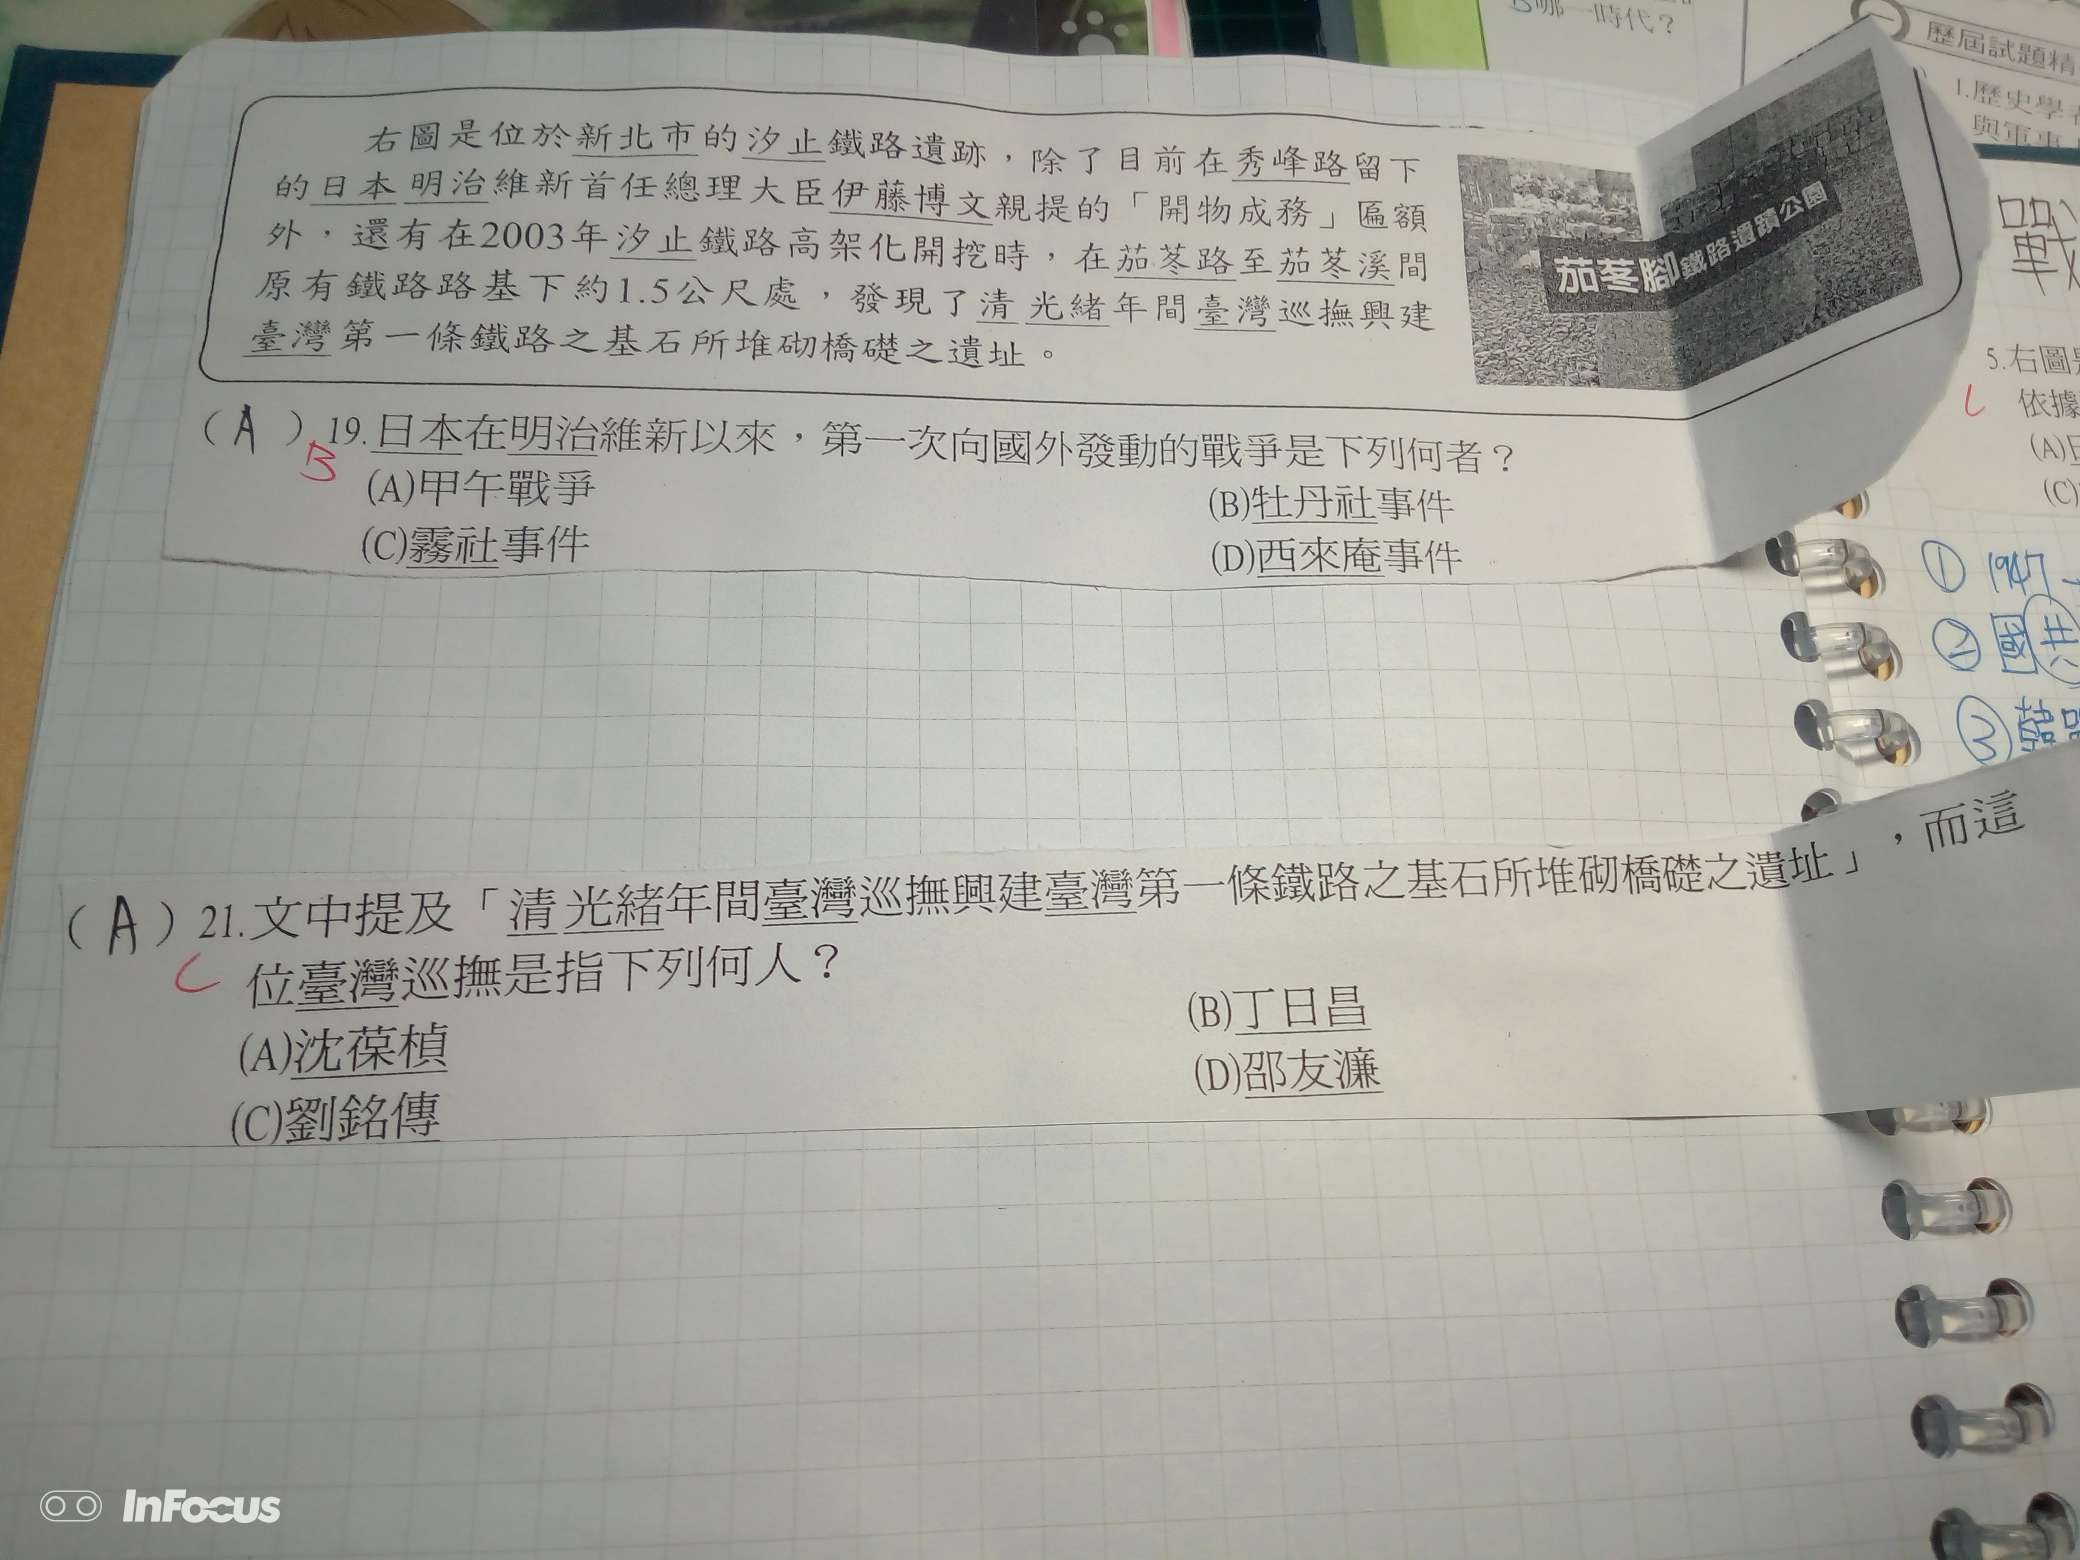 哪一時代？
歷屆試題精
1.歷史學者
與軍事
右圖是位於新北市的汐止鐵路遺跡，除了目前在秀峰路留下
的日本明治維新首任總理大臣伊藤博文親提的「開物成務」匾額
外，還有在2003年汐止鐵路高架化開挖時，在茄苳路至茄苳溪間
原有鐵路路基下約1.5公尺處，發現了清光緒年間臺灣巡撫興建
臺灣第一條鐵路之基石所堆砌橋礎之遺址。
茄苳腳鐵路遺蹟公園
（A）19.日本在明治維新以來，第一次向國外發動的戰爭是下列何者？
B
(A)甲午戰爭
(B)牡丹社事件
(C)霧社事件
(D)西來庵事件
戰
5.右圖
C 依據
(A)
(C)
① 1947
② 國共
③
（A）21.文中提及「清光緒年間臺灣巡撫興建臺灣第一條鐵路之基石所堆砌橋礎之遺址」，而這
C 位臺灣巡撫是指下列何人？
(A)沈葆楨
(B)丁日昌
(C)劉銘傳
(D)邵友濂
InFocus